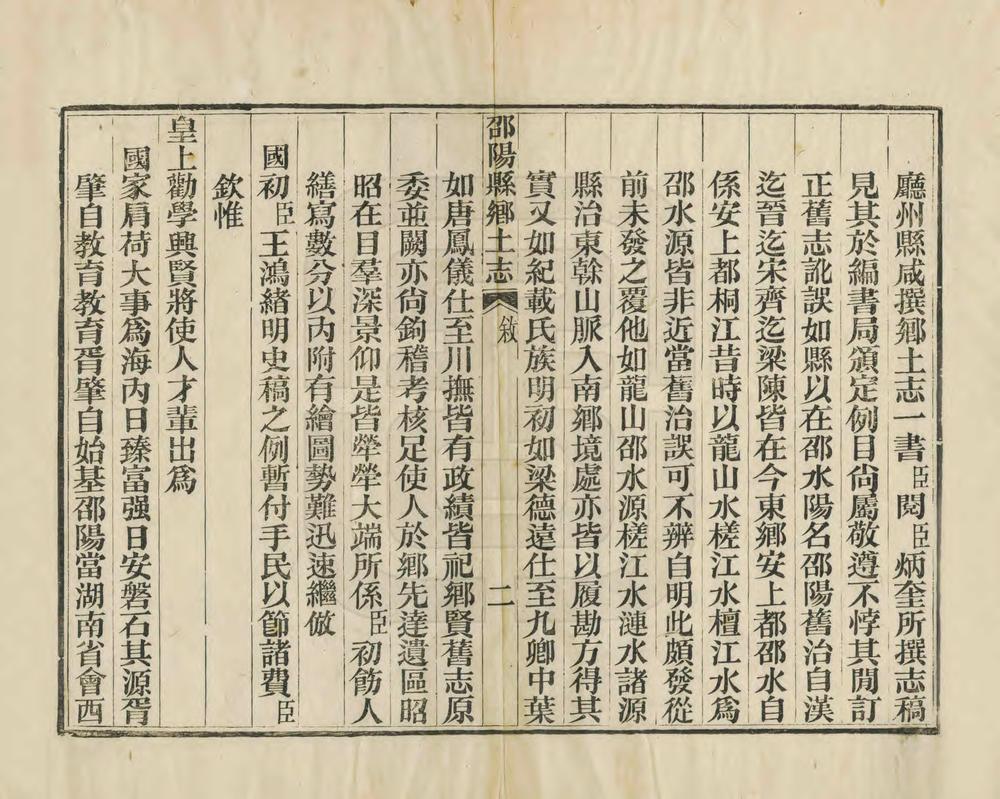 廳州縣咸撰鄉土志一書臣閱臣炳奎所撰志稿
見其於編書局頒定例目尙屬敬遵不悖其閒訂
正舊志訛誤如縣以在邵水陽名邵陽舊治自漢
迄晉迄宋齊迄梁陳皆在今東鄉安上都邵水自
係安上都桐江昔時以龍山水槎江水檀江水爲
邵水源皆非近當舊治誤可不辨自明此頗發從
前未發之覆他如龍山邵水源槎江水漣水諸源
縣治東幹山脈入南鄉境處亦皆以履勘方得其
實又如紀載氏族明初如梁德遠仕至九卿中葉
邵陽縣鄉土志 敘 二
如唐鳳儀仕至川撫皆有政績皆祀鄉賢舊志原
委並闕亦尙鉤稽考核足使人於鄉先達遺區昭
昭在目羣深景仰是皆犖犖大端所係臣初飭人
繕寫數分以內附有繪圖勢難迅速繼倣
國初臣王鴻緒明史稿之例暫付手民以節諸費臣
欽惟
皇上勸學興賢將使人才輩出爲
國家肩荷大事爲海內日臻富强日安磐石其源胥
肇自教育教育胥肇自始基邵陽當湖南省會西